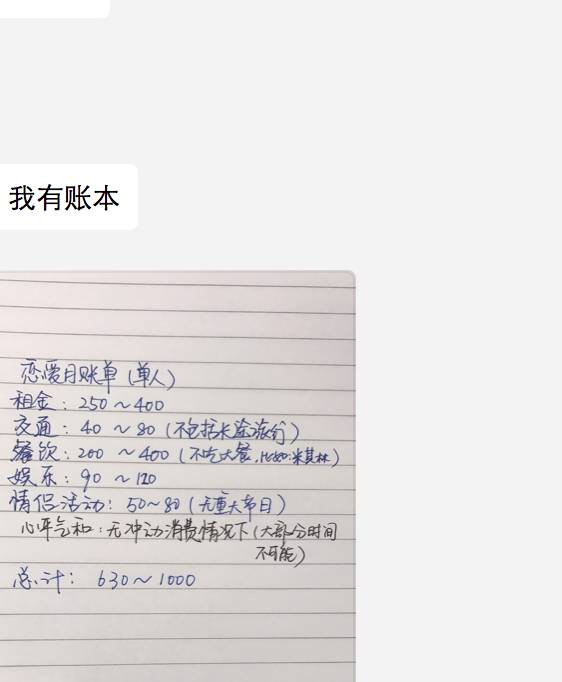 我有账本
恋爱月账单（单人）
租金：250～400
交通：40～80（不包括长途旅行）
餐饮：200～400（不吃大餐，比如:米其林）
娱乐：90～120
情侣活动：50～80（无重大节日）
心平气和：无冲动消费情况下（大部分时间
不可能）
总计：630～1000